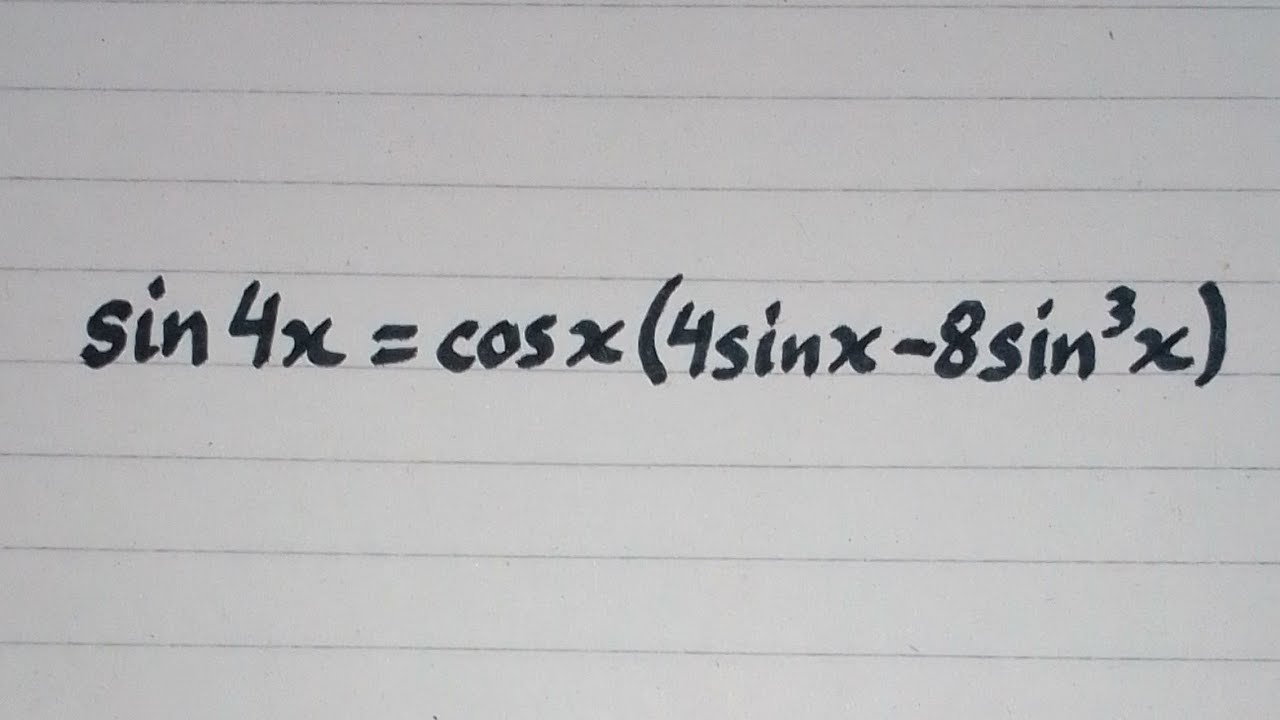 sin 4x = cos x (4 sin x - 8 sin³x)